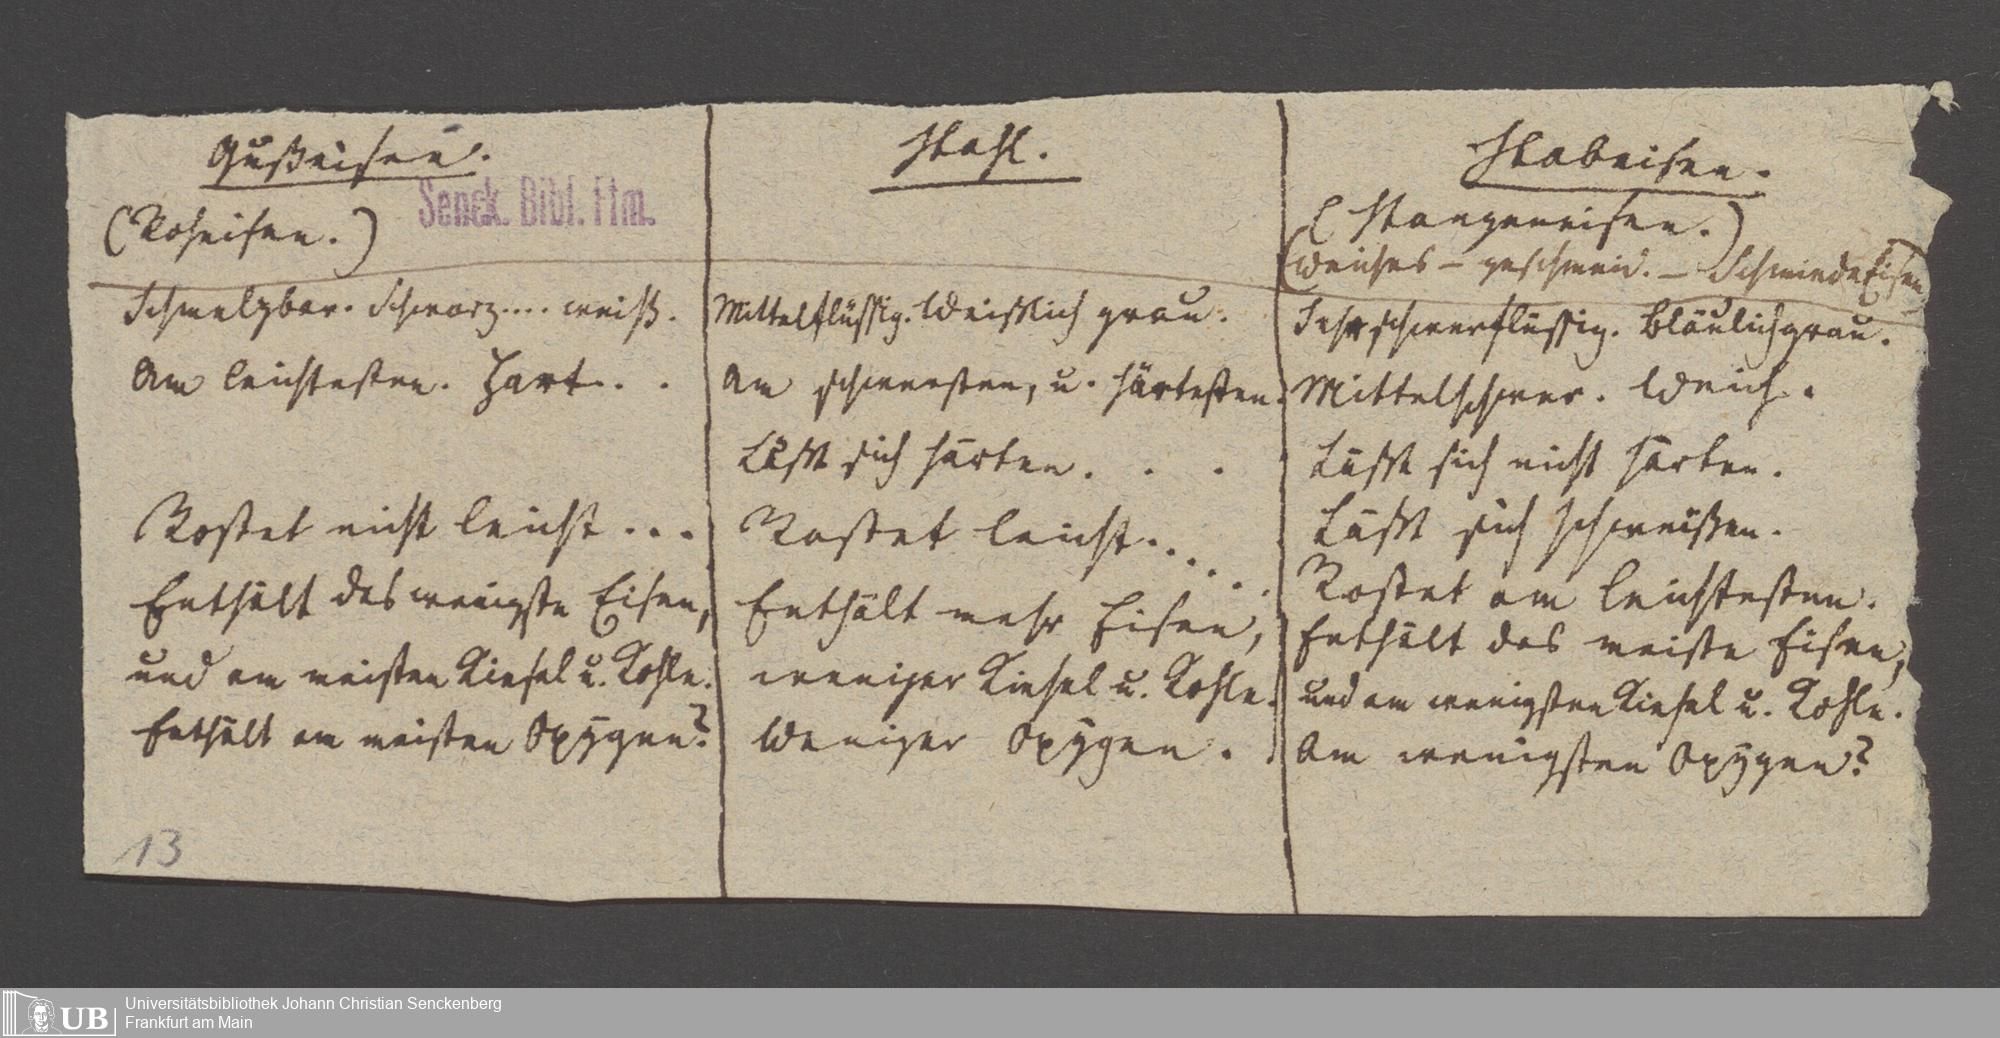 Gußeisen.
(Roheisen.)
Senck. Bibl. Ffm.
Schmelzbar. Schwarz.... weiß.
Am leichtesten. Hart. . .
Rostet nicht leicht ...
Enthält das wenigste Eisen,
und am meisten Kiesel u. Kohle.
Enthält am meisten Oxÿgen?
13
Stahl.
Mittelflüßig. Weißlich grau.
Am schwersten, u. härtesten.
Läßt sich härten. . .
Rostet leicht.....
Enthält mehr Eisen,
weniger Kiesel u. Kohle.
Weniger Oxÿgen.
Stabeisen.
(Stangeneisen.)
(Weiches – geschmeid. – SchmiedeEisen
Sehr schwerflüßig. Bläulichgrau.
Mittelschwer. Weich.
Läßt sich nicht härten.
Läßt sich schweißen.
Rostet am leichtesten.
Enthält das meiste Eisen,
und am wenigsten Kiesel u. Kohle.
Am wenigsten Oxÿgen?
UB
Universitätsbibliothek Johann Christian Senckenberg
Frankfurt am Main